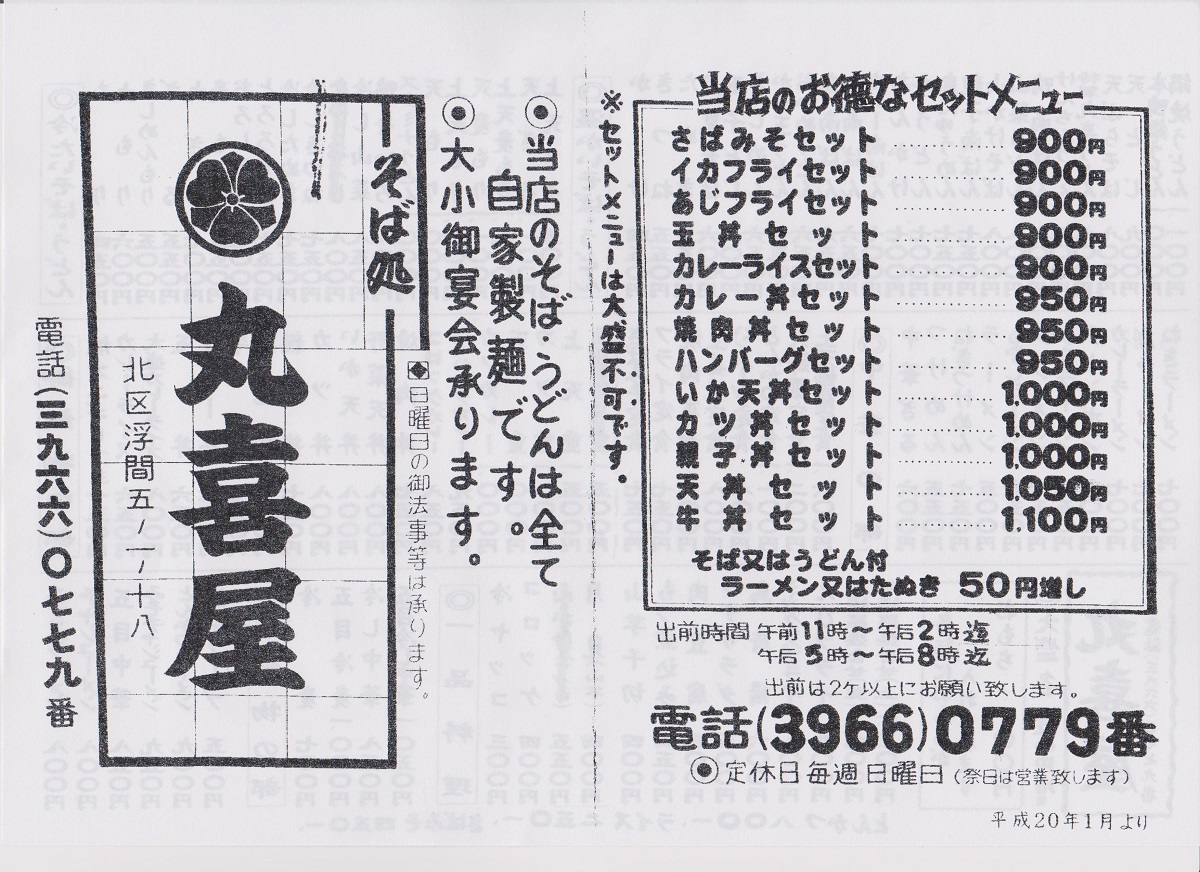 当店のお徳なセットメニュー
さばみそセット 900円
イカフライセット 900円
あじフライセット 900円
玉丼セット 900円
カレーライスセット 900円
カレー丼セット 950円
焼肉丼セット 950円
ハンバーグセット 950円
いか天丼セット 1.000円
カツ丼セット 1.000円
親子丼セット 1.000円
天丼セット 1.050円
牛丼セット 1.100円
そば又はうどん付
ラーメン又はたぬき 50円増し
出前時間 午前11時〜午后2時迄
午后5時〜午后8時迄
出前は2ケ以上にお願い致します。
電話(3966)0779番
◉定休日毎週日曜日(祭日は営業致します)
平成20年1月より
※セットメニューは大盛不可です。
◉当店のそばうどんは全て
自家製麺です。
◉大小御宴会承ります。
◆日曜日の御法事等は承ります。
そば処
丸喜屋
北区浮間五ノ一ノ十八
電話(三九六六)〇七七九番